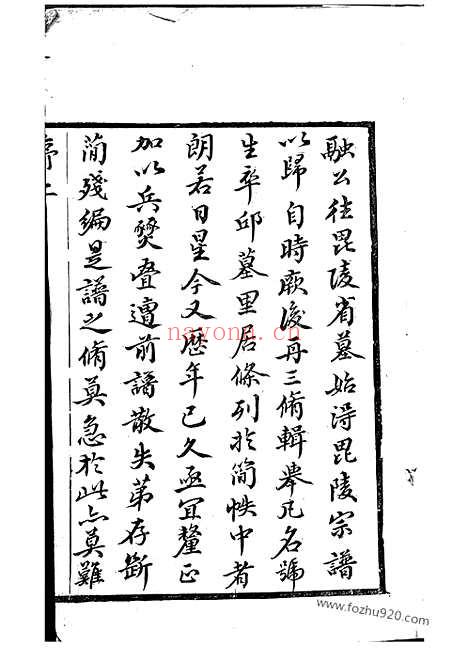 融公往毘陵省墓始得毘陵宗譜
以歸自時厥後再三脩輯舉凡名號
生卒邱墓里居條列於簡帙中者
朗若日星今又歷年已久亟宜釐正
加以兵燹疊遭前譜散失苐存斷
簡殘編是譜之脩莫急於此亦莫難
序二
nayona.cn
www.fozhu920.com